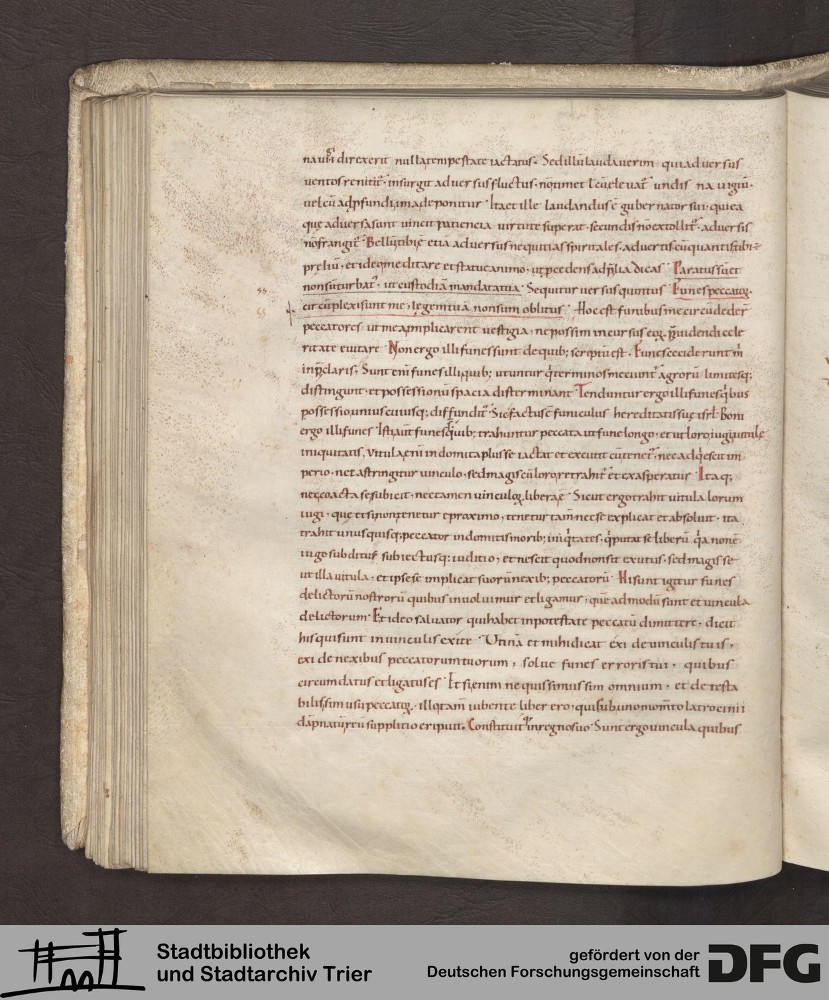 nauẽ direxerit nulla tempestate iactatus. Sed illũ laudauerim qui aduersus
uentos renititͬ. insurgit aduersus fluctus. nõ timet undis nauigiũ.
uel cũ adꝓfundi ima deponitur. Ita et ille laudandus ẽ gubernator sui. qui ea
quę aduersa sunt uincit patiencia. uirtute superat. secundis nõ extollitͬ. aduersis
nõ frangitͬ. Bellũ tibi ẽ etiã aduersus nequitias spiritales. aduertis cũ quantis tibi ẽ
prelium. et ideo meditare et statue animo. ut pcedens ad plia dicas. Paratus sũ et
non sũ turbatͬ. ut custodiã mandata tua. Sequitur uersus quintus. Funes peccatoꝝ
circũplexi sunt me, legem tuã non sum oblitus. Hoc est funibus me circũdeder̄
peccatores ut me amplicarent uestigia. ne possim incursus eoꝝ puidendi cele
ritate euitare. Non ergo illi funes sunt de quib; scriptũ est. Funes ceciderunt m̄
in pclaris. Sunt eni funes illi quib; utuntur qͥ terminos meciuntͬ agrorũ limitesq;
distingunt. et possessionũ spacia disterminant. Tenduntur ergo illi funes qͥbus
possessio uniuscuiusq; diffunditͬ. Sic factus ẽ funiculus hereditatis suę isrl̄. Boni
ergo illi funes. Isti aut̄ funes quib; trahuntur peccata ut fune longo. et ut loro iugi uitulę
iniquitatis. Vitula eni indomita plus se iactat et excutit cũ tenetͬ. nec adqͥescit im
perio. net astringitur uinculo. sed magis cũ loro retrahitͬ et exasperatus. Itaq;
nec coacta se subicit. nec tamen uinculoꝝ libera ẽ. Sicut ergo trahit uitula lorum
iugi. quę etsi non tenetur e proximo, tenetur tam̄ nec se explicat et absoluit. ita
trahit unusquisq; peccator indomitis morib; iniqͥtates. qͥ putat se liberũ qͥa non ẽ
iugo subditus subiectusq; iuditio, et nescit quod non sit exutus. sed magis se
ut illa uitula. et ipse se implicat suorũ nexib; peccatorũ. Hi sunt igitur funes
delictorũ nostrorũ quibus inuoluimur et ligamur. quẽ admodũ sunt et uincula
delictorum. Et ideo saluator qui habet in potestate peccatũ dimittere. dicit
his qui sunt in uinculis exite. Utinã et mihi dicat exi de uinculis tuis,
exi de nexibus peccatorum tuorum, solue funes erroris tui. quibus
circumdatus et ligatus es. Et si enim nequissimus sim omnium. et detesta
bilis sim usu peccatoꝝ. illo tam̄ iubente liber ero. qui sub uno momto latrocinii
dãpnatũ reũ supplitio eripuit. Constituit in regno suo. Sunt ergo uincula quibus
Stadtbibliothek
und Stadtarchiv Trier
gefördert von der
Deutschen Forschungsgemeinschaft
DFG